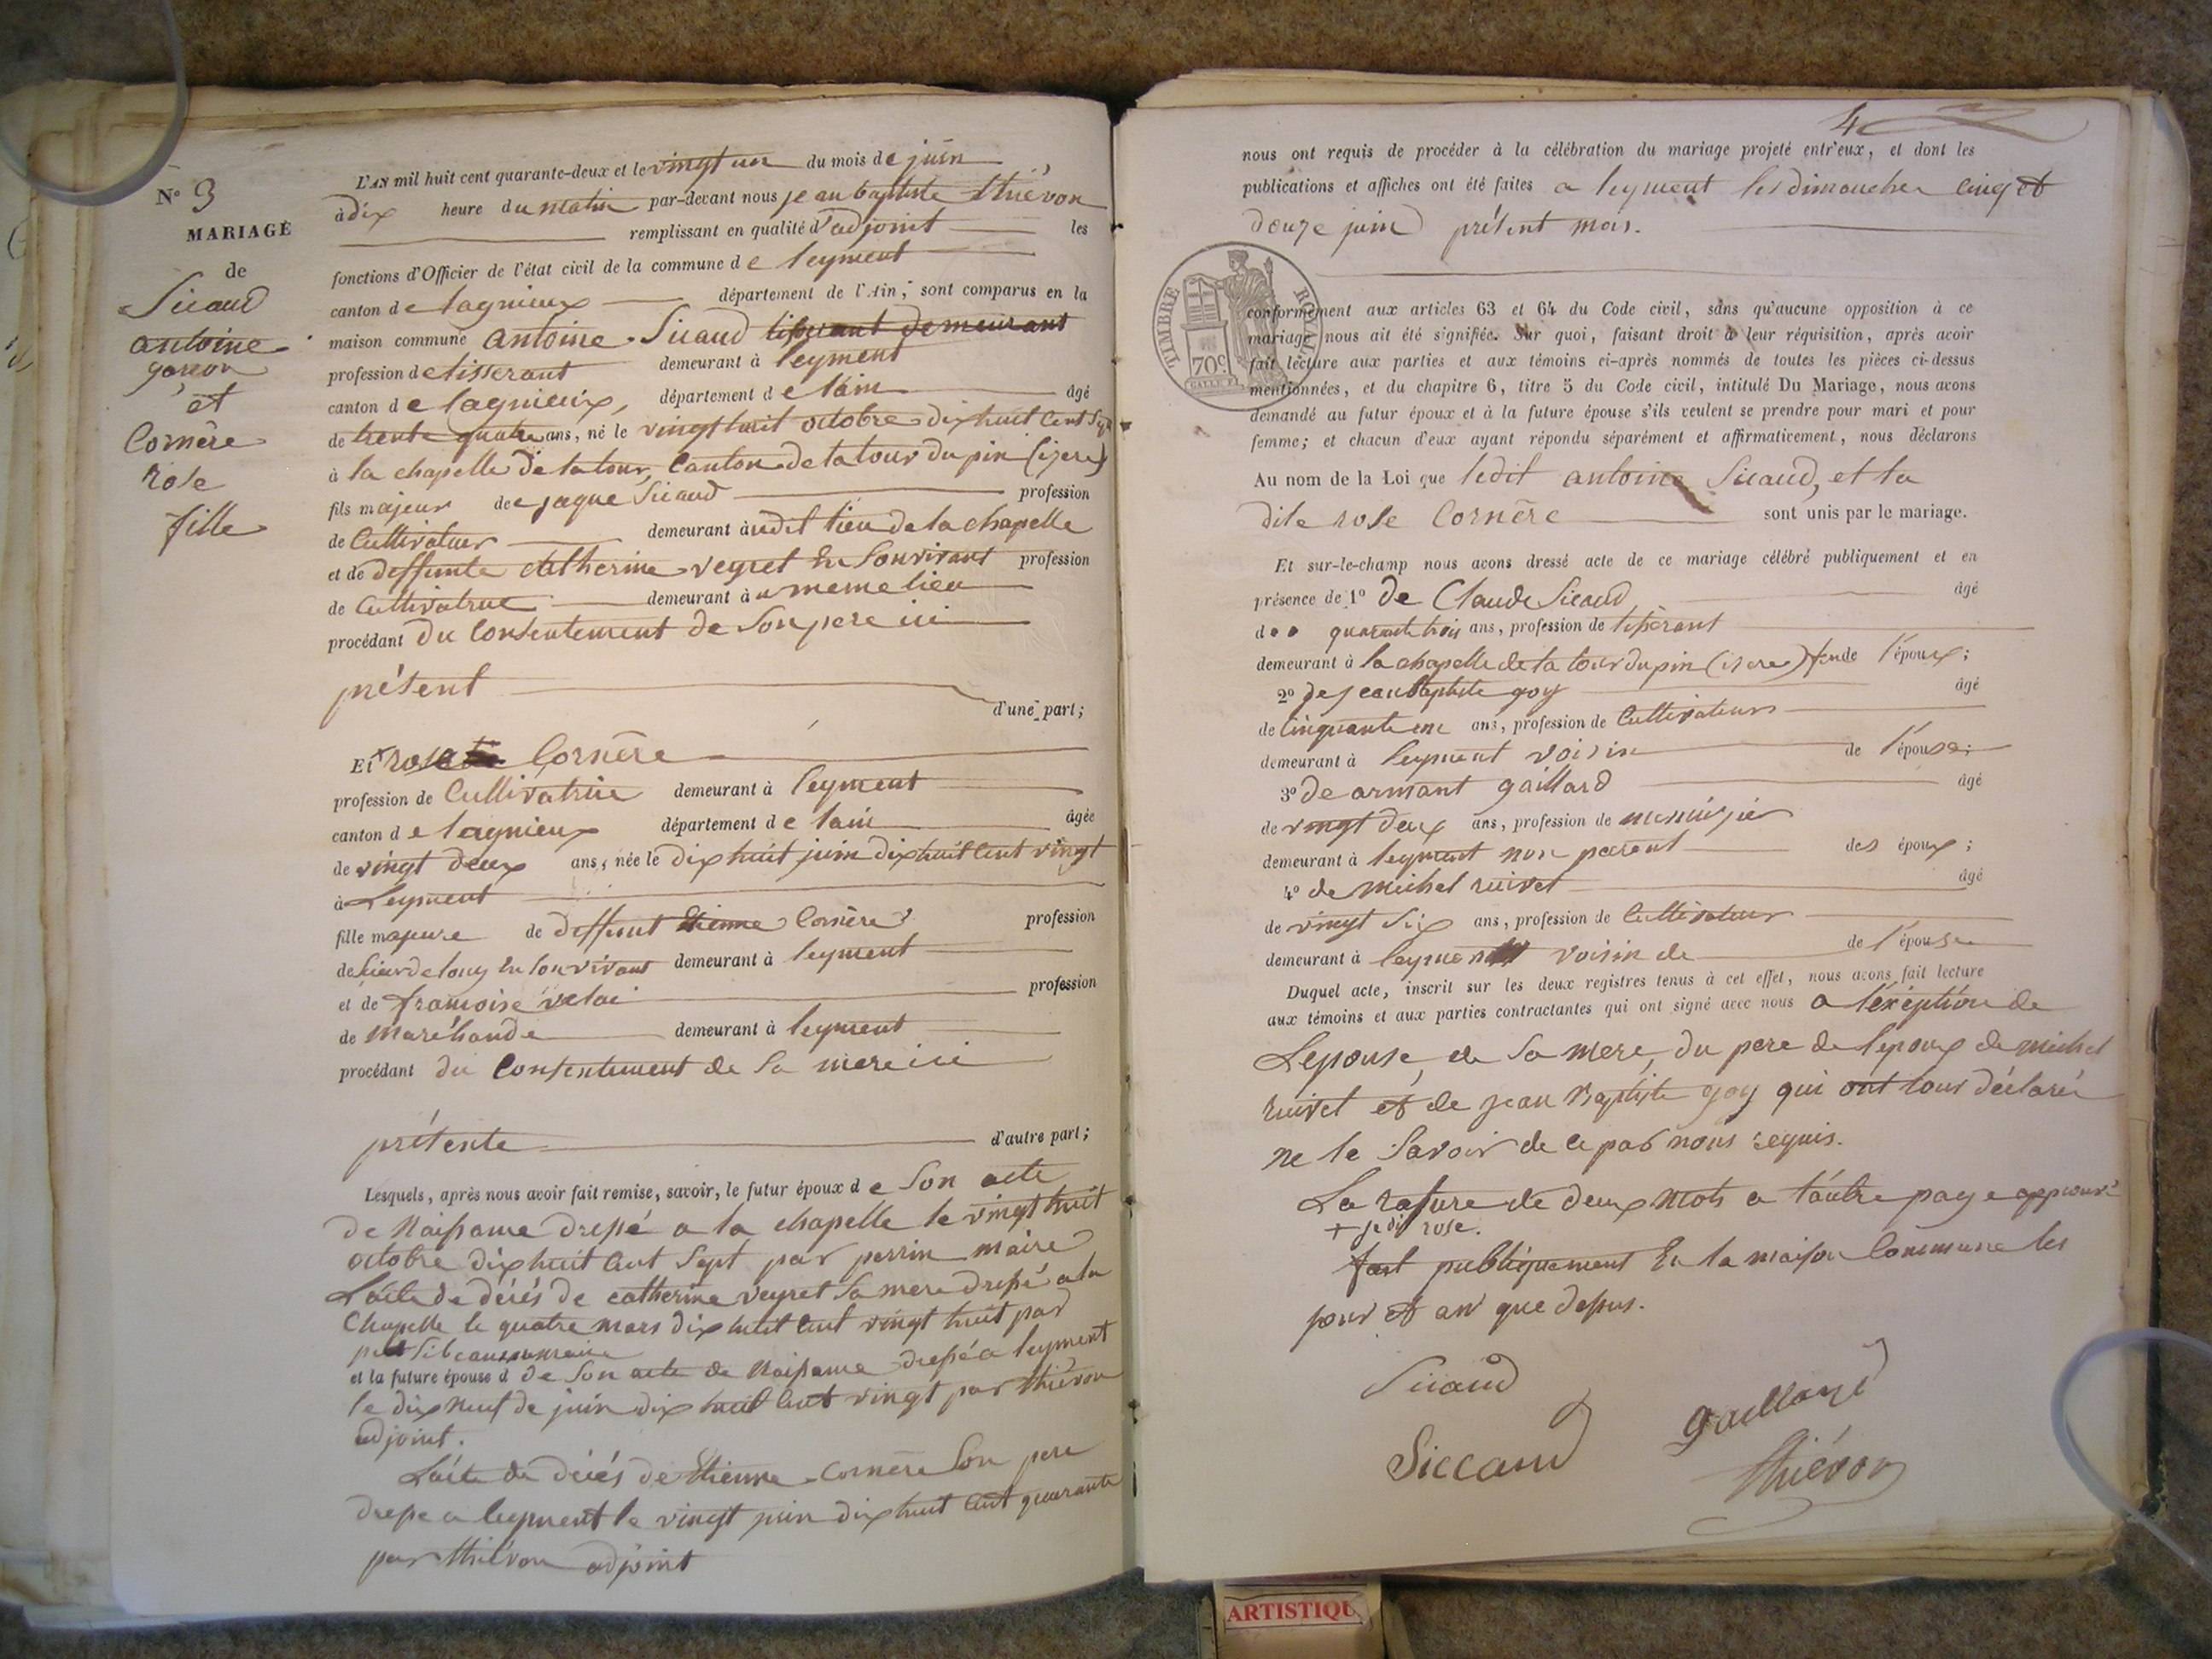 N° 3
MARIAGE
de
Sicaud
antoine
garçon
et
Cornère
rose
fille
L'AN mil huit cent quarante-deux et le vingt un du mois de juin
à dix heure du matin par-devant nous jean baptiste thiévon
remplissant en qualité d'adjoint les
fonctions d'Officier de l'état civil de la commune de leyment
canton de lagnieux département de l'Ain, sont comparus en la
maison commune antoine Sicaud tisserant demeurant
profession de tisserant demeurant à leyment
canton de lagnieux, département de l'ain âgé
de trente quatre ans, né le vingt huit octobre dix huit cent sept
à la chapelle de la tour, canton de la tour du pin (isere)
fils majeur de jaque Sicaud profession
de Cultivateur demeurant audit lieu de la chapelle
et de deffunte catherine veyret En Son vivant profession
de Cultivatrice demeurant au meme lieu
procédant du Consentement de Son pere ici
présent
d'une part;
Et rose Cornère
profession de Cultivatrice demeurant à leyment
canton de lagnieux département de lain âgée
de vingt deux ans, née le dix huit juin dix huit cent vingt
à Leyment
fille majeure de deffunt Etienne Cornère profession
de Sieur de long En Son vivant demeurant à leyment
et de francoise velai profession
de marchande demeurant à leyment
procédant du Consentement de Sa mere ici
présente d'autre part;
Lesquels, après nous avoir fait remise, savoir, le futur époux de Son acte
de Naissance dressé a la chapelle le vingt huit
octobre dix huit cent Sept par perrin maire
L'acte de décés de catherine veyret Sa mere dressé a la
Chapelle le quatre mars dix huit cent vingt huit par
maire
et la future épouse d de Son acte de Naissance dressé a leyment
le dix neuf de juin dix huit cent vingt par thiévon
adjoint.
L'acte de décés de Etienne Cornère Son pere
dressé a leyment le vingt juin dix huit cent quarante
par thiévon adjoint
4
nous ont requis de procéder à la célébration du mariage projeté entr'eux, et dont les
publications et affiches ont été faites a leyment les dimanches cinq et
douze juin présent mois.
TIMBRE ROYAL
70c
conformément aux articles 63 et 64 du Code civil, sans qu'aucune opposition à ce
mariage nous ait été signifiée. Sur quoi, faisant droit à leur réquisition, après avoir
fait lecture aux parties et aux témoins ci-après nommés de toutes les pièces ci-dessus
mentionnées, et du chapitre 6, titre 5 du Code civil, intitulé Du Mariage, nous avons
demandé au futur époux et à la future épouse s'ils veulent se prendre pour mari et pour
femme; et chacun d'eux ayant répondu séparément et affirmativement, nous déclarons
Au nom de la Loi que ledit antoine Sicaud, et la
dite rose Cornère sont unis par le mariage.
Et sur-le-champ nous avons dressé acte de ce mariage célébré publiquement et en
présence de 1° de Claude Sicaud âgé
de quarante trois ans, profession de tisserant
demeurant à la chapelle de la tour du pin (isere) de l'époux;
2° de jean Baptiste goy âgé
de Cinquante un ans, profession de Cultivateur
demeurant à leyment voisin de l'épouse;
3° de armant gaillard âgé
de vingt deux ans, profession de menuisier
demeurant à leyment non parent des époux;
4° de michel ruivet âgé
de vingt Six ans, profession de Cultivateur
demeurant à leyment voisin de de l'épouse
Duquel acte, inscrit sur les deux registres tenus à cet effet, nous avons fait lecture
aux témoins et aux parties contractantes qui ont signé avec nous a l'éxéption de
Lepouse, de Sa mere, du pere de l'époux de michel
ruivet et de jean Baptiste goy qui ont tous déclarés
ne le Savoir de ce par nous requis.
La rasure de deux mots a l'autre page approuvé
+ je dis rose.
fait publiquement En la maison Commune les
jour et an que dessus.
Sicaud
gaillard
Siccaud
thiévon
ARTISTIQU